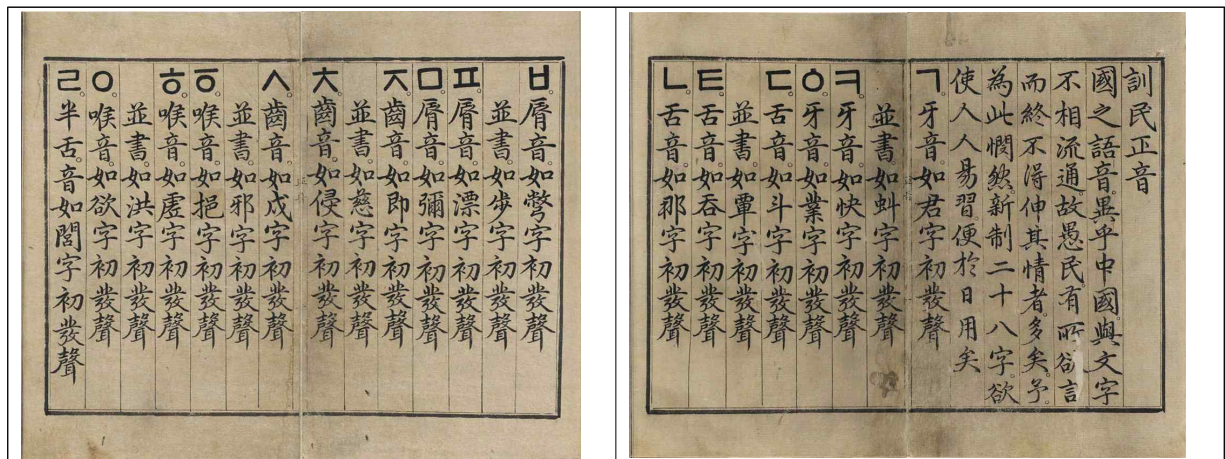 訓民正音
國之語音。異乎中國。與文字
不相流通。故愚民。有所欲言
而終不得伸其情者。多矣。予。
為此憫然。新制二十八字。欲
使人人易習。便於日用矣
ㄱ。牙音。如君字初發聲
並書。如虯字初發聲
ㅋ。牙音。如快字初發聲
ㆁ。牙音。如業字初發聲
ㄷ。舌音。如斗字初發聲
並書。如覃字初發聲
ㅌ。舌音。如吞字初發聲
ㄴ。舌音。如那字初發聲
ㅂ。脣音。如彆字初發聲
並書。如步字初發聲
ㅍ。脣音。如漂字初發聲
ㅁ。脣音。如彌字初發聲
ㅈ。齒音。如即字初發聲
並書。如慈字初發聲
ㅊ。齒音。如侵字初發聲
ㅅ。齒音。如戌字初發聲
並書。如邪字初發聲
ㆆ。喉音。如挹字初發聲
ㅎ。喉音。如虛字初發聲
並書。如洪字初發聲
ㅇ。喉音。如欲字初發聲
ㄹ。半舌。音如閭字初發聲